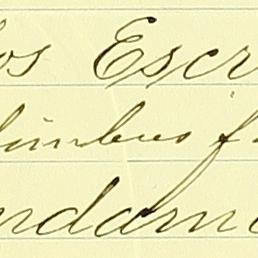 os Escr
limbus f
ndam